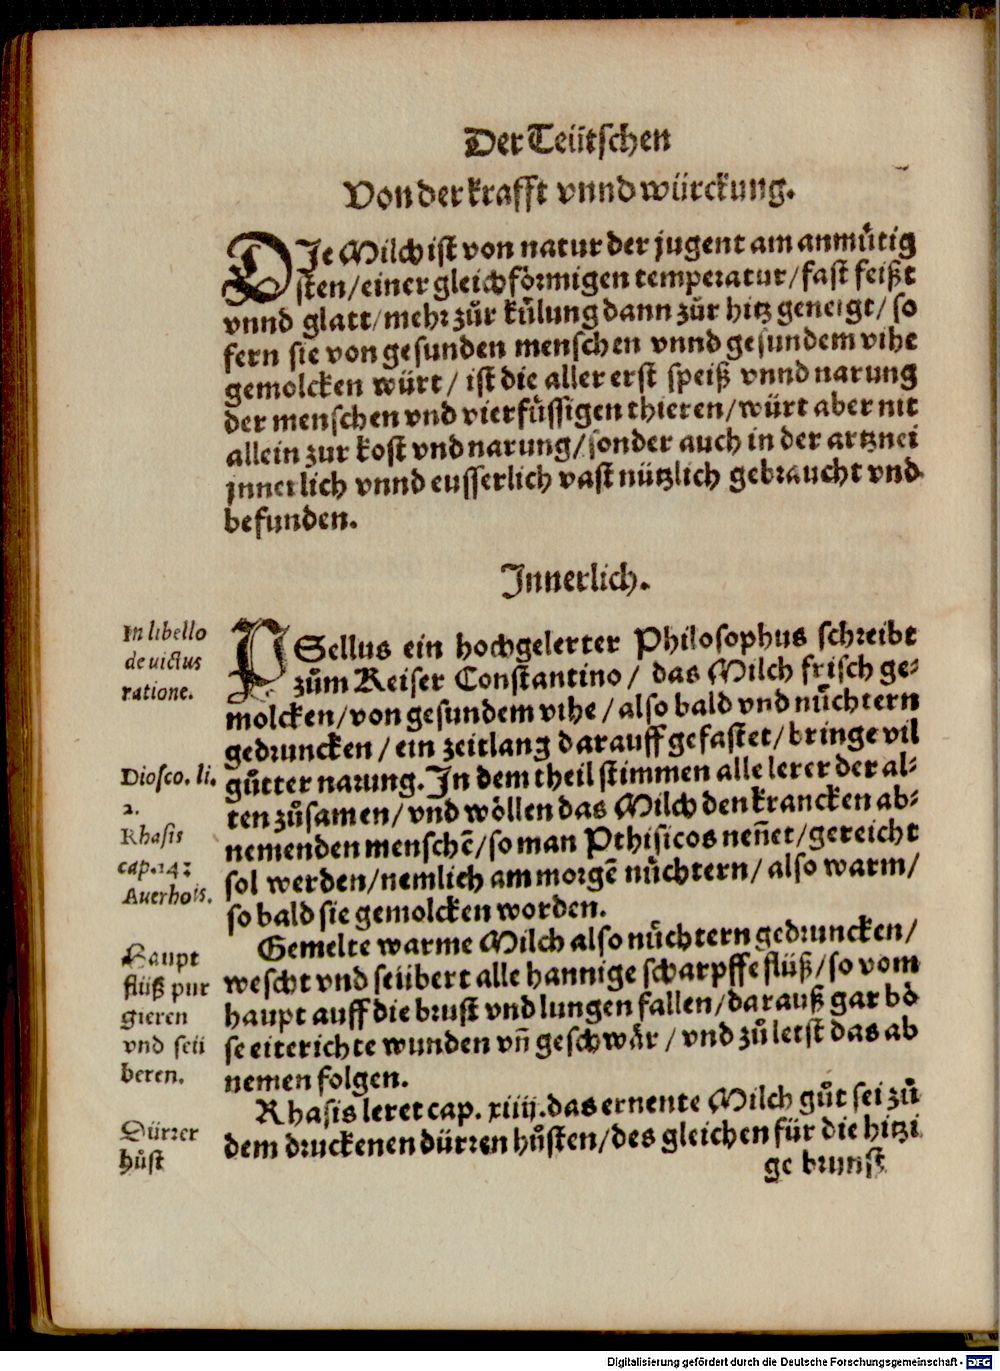 Der Teütschen
Von der krafft vnnd würckung.
DJe Milch ist von natur der jugent am anmuͤtig
sten/einer gleichfoͤrmigen temperatur/fast feißt
vnnd glatt/mehr zuͦr kuͤlung dann zuͦr hitz geneigt/so
fern sie von gesunden menschen vnnd gesundem vihe
gemolcken würt/ ist die aller erst speiß vnnd narung
der menschen vnd vierfuͤssigen thieren/würt aber nit
allein zur kost vnd narung/sonder auch in der artznei
jnnerlich vnnd eusserlich vast nützlich gebraucht vnd
befunden.
Jnnerlich.
In libello
de victus
ratione.
PSellus ein hochgelerter Philosophus schreibt
zuͦm Keiser Constantino/ das Milch frisch ge⸗
molcken/von gesundem vihe/also bald vnd nuͤchtern
gedruncken/ein zeitlang darauff gefastet/bringe vil
guͦtter narung. Jn dem theil stimmen alle lerer der al⸗
ten zuͦsamen/vnd woͤllen das Milch den krancken ab⸗
nemenden menschē/so man Pthisicos nen̄et/gereicht
sol werden/nemlich am morgē nuͤchtern/also warm/
so bald sie gemolcken worden.
Diosco. li.
2.
Rhasis
cap.14;
Auerhois.
Gemelte warme Milch also nuͤchtern gedruncken/
wescht vnd seübert alle hannige scharpffe flüß/so vom
haupt auff die brust vnd lungen fallen/darauß gar boͤ
se eiterichte wunden vn̄ geschwaͤr/vnd zuͦ letst das ab
nemen folgen.
Haupt
flüß pur
gieren
vnd seü
beren.
Rhasis leret cap. xiiij. das ernente Milch guͦt sei zuͦ
dem druckenen dürren huͦsten/des gleichen für die hitzi
Dürrer
huͦst
ge brunst
Digitalisierung gefördert durch die Deutsche Forschungsgemeinschaft - DFG